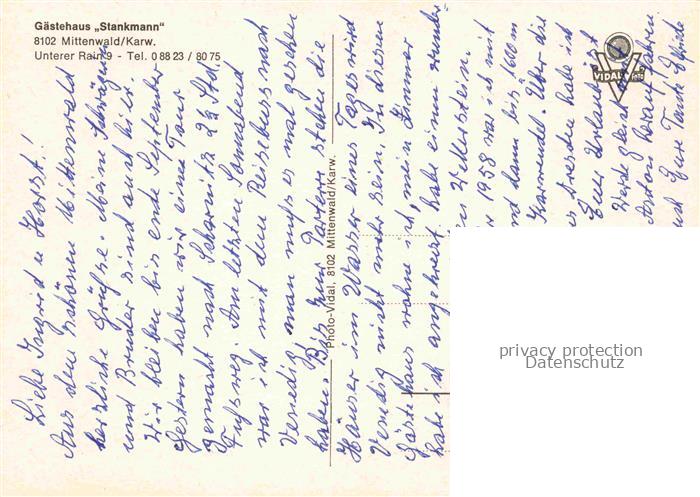 Gästehaus „Stankmann"
8102 Mittenwald/Karw.
Unterer Rain 9 - Tel. 0 88 23 / 80 75
VIDAL
Photo-Vidal, 8102 Mittenwald/Karw.
Liebe Ingrid u Horst!
Aus den schönen Mittenwald
herzliche Grüße. Meine Schwägerin
und Bruder sind auch hier.
Wir bleiben bis ende September
Gestern haben wir eine Tour
gemacht nach Scharnitz 2½ Std.
Fußweg. Am letzten Sonnabend
war ich mit dem Reisebuss nach
Venedig, man muß es mal gesehen
haben. Bis zum stehen die
Häuser im Wasser eines Tages wird
Venedig nicht mehr sein. In diesem
Gästehaus wohne ich, mein Zimmer
habe ich angekreuzt habe einen wunder-
1958 war ich mit
und dann bis 1600 m
Karwendel. Über die
Dresden habe ich
Euer Urlaub ist
Werde gleich mit
hinauf fahren.
Eure Tante Elfriede
privacy protection
Datenschutz